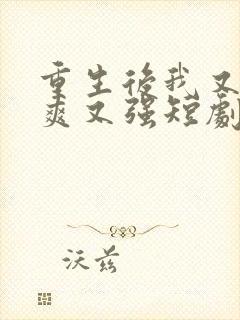 重生後我又
爽又强短劇
沃兹